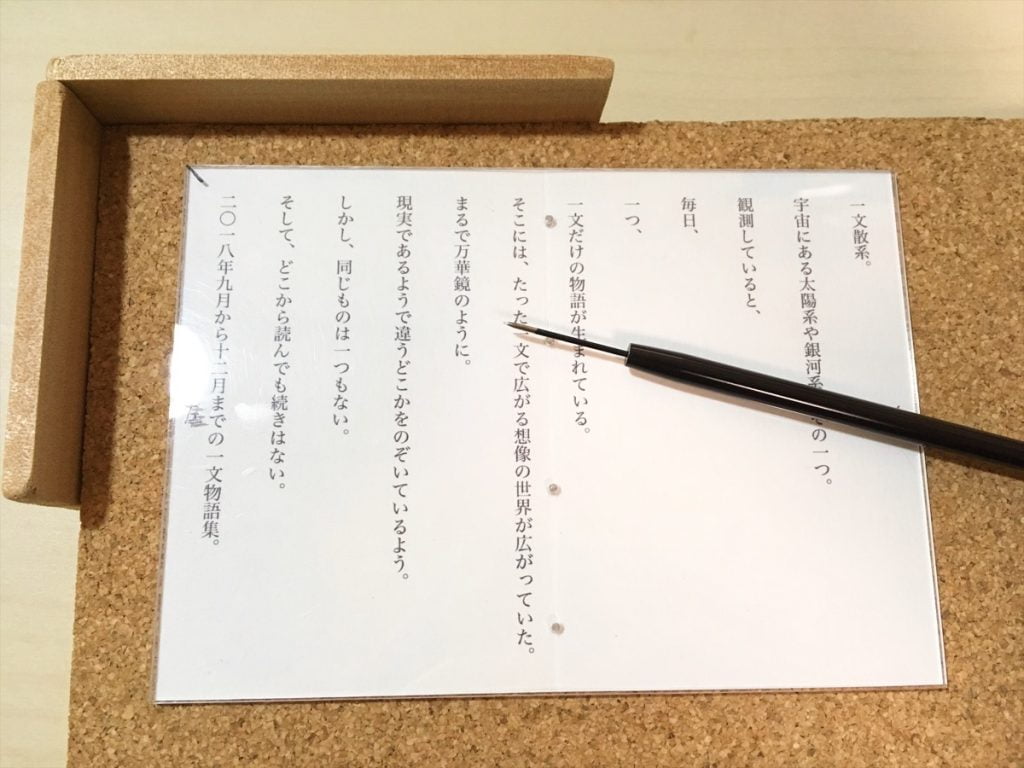 一文散系。
宇宙にある太陽系や銀河系 の一つ。
観測していると、
毎日、
一つ、
一文だけの物語が生まれている。
そこには、たった一文で広がる想像の世界が広がっていた。
まるで万華鏡のように。
現実であるようで違うどこかをのぞいているよう。
しかし、同じものは一つもない。
そして、どこから読んでも続きはない。
二〇一八年九月から十二月までの一文物語集。